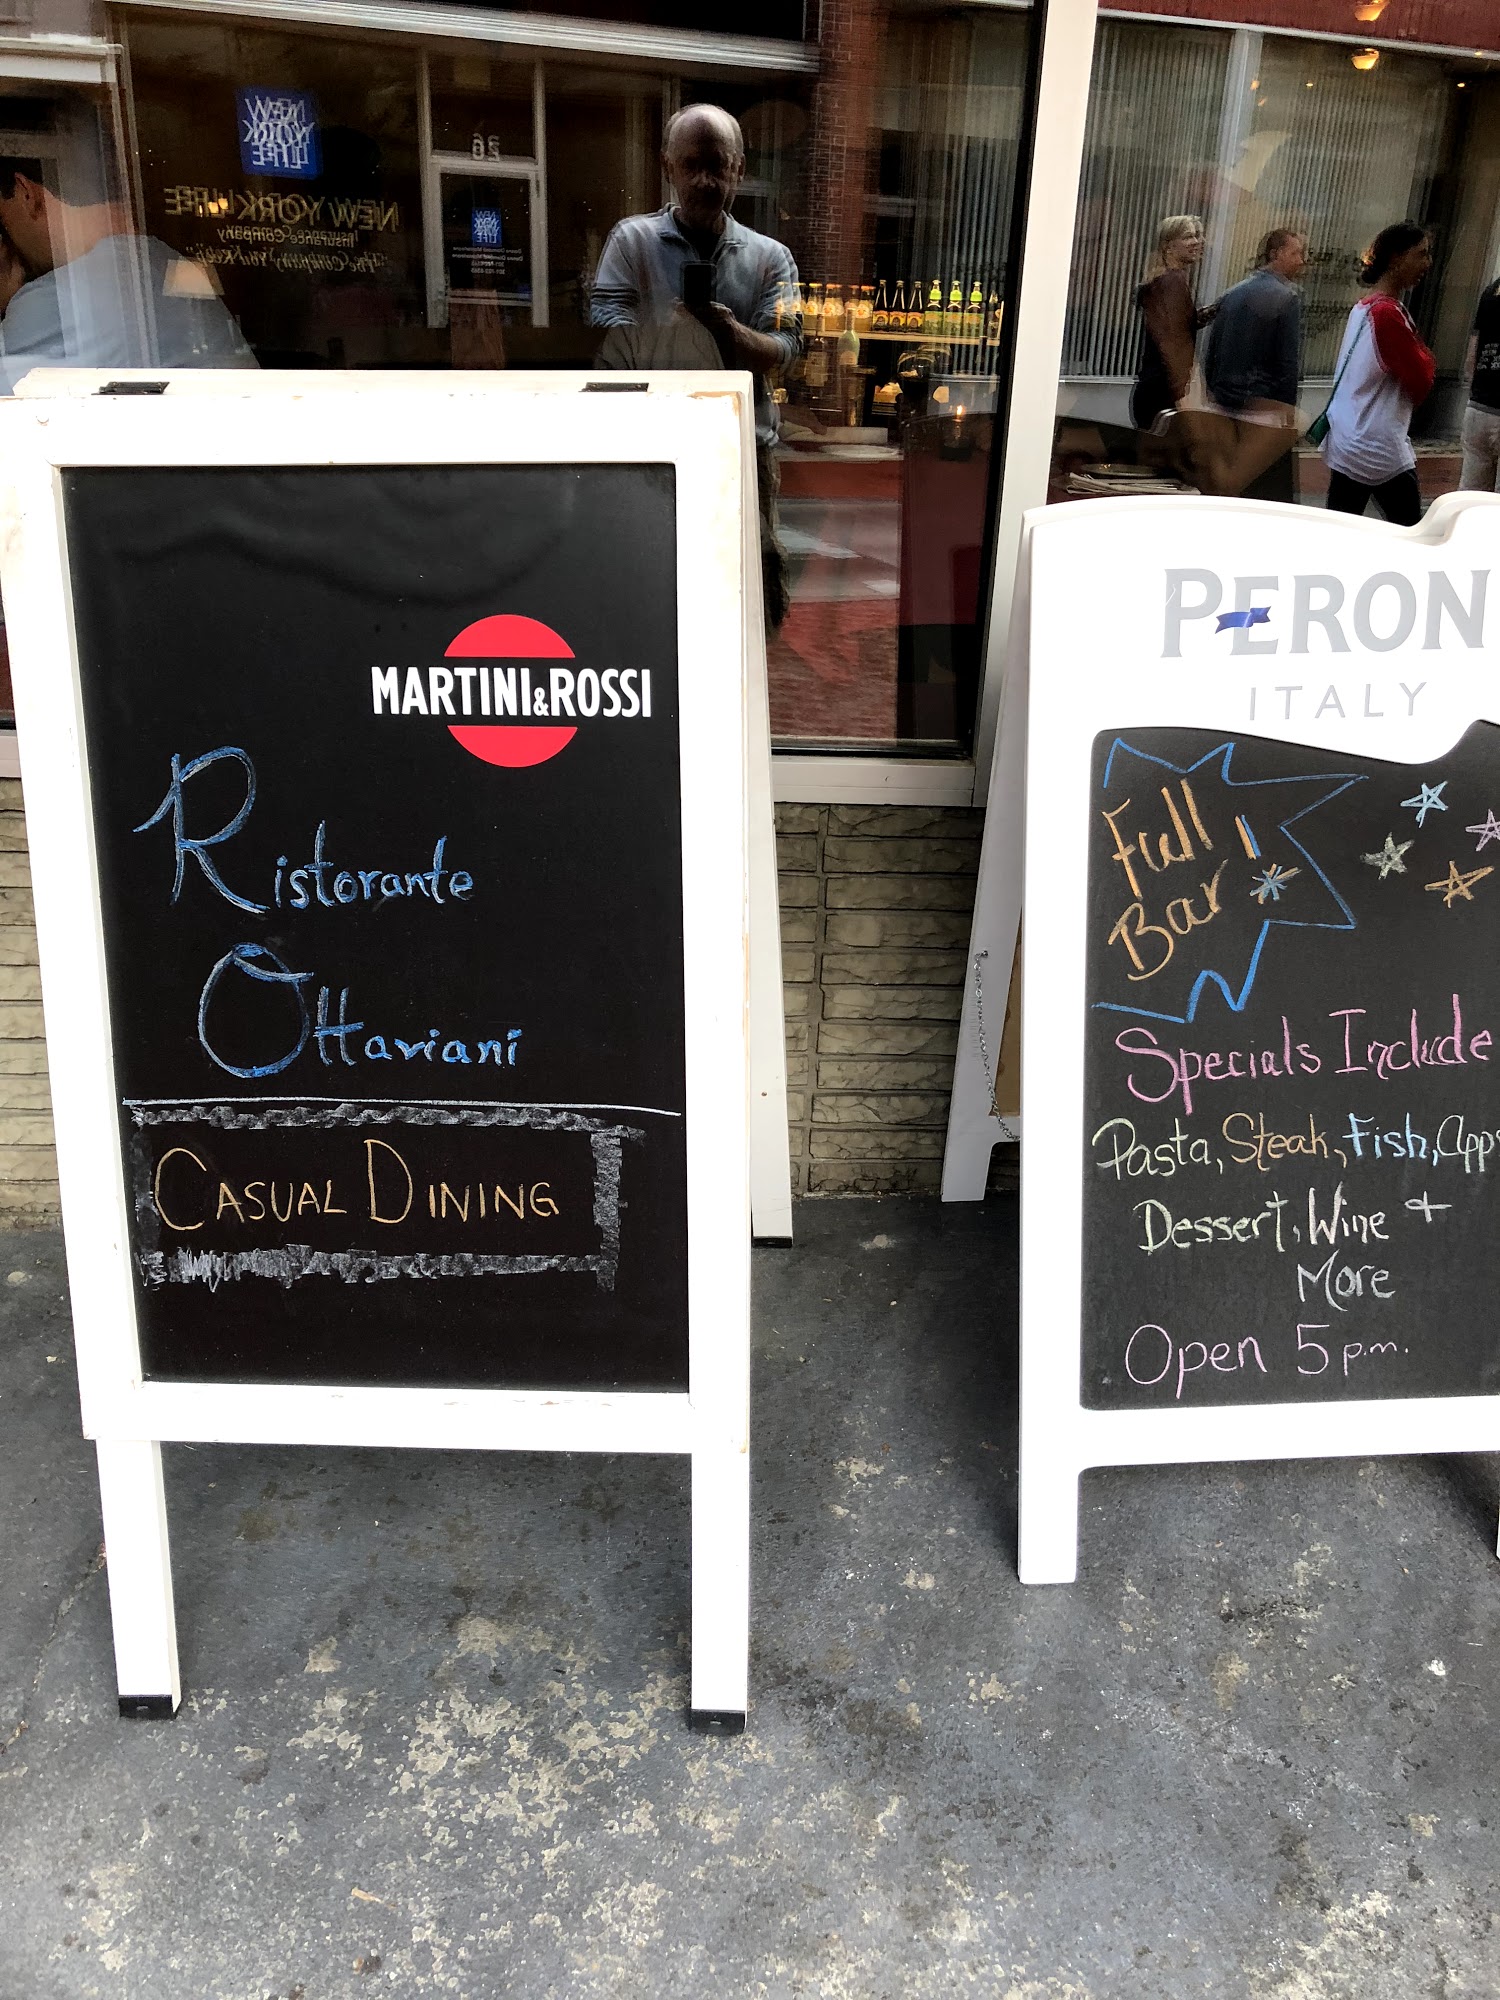 NEW
YORK
LIFE
NEW YORK LIFE
Insurance Company
"The Company You Keep"
26
MARTINI&ROSSI
Ristorante
Ottaviani
CASUAL DINING
PERONI
ITALY
Full
Bar!
Specials Include
Pasta, Steak, Fish, Apps
Dessert, Wine +
More
Open 5 p.m.